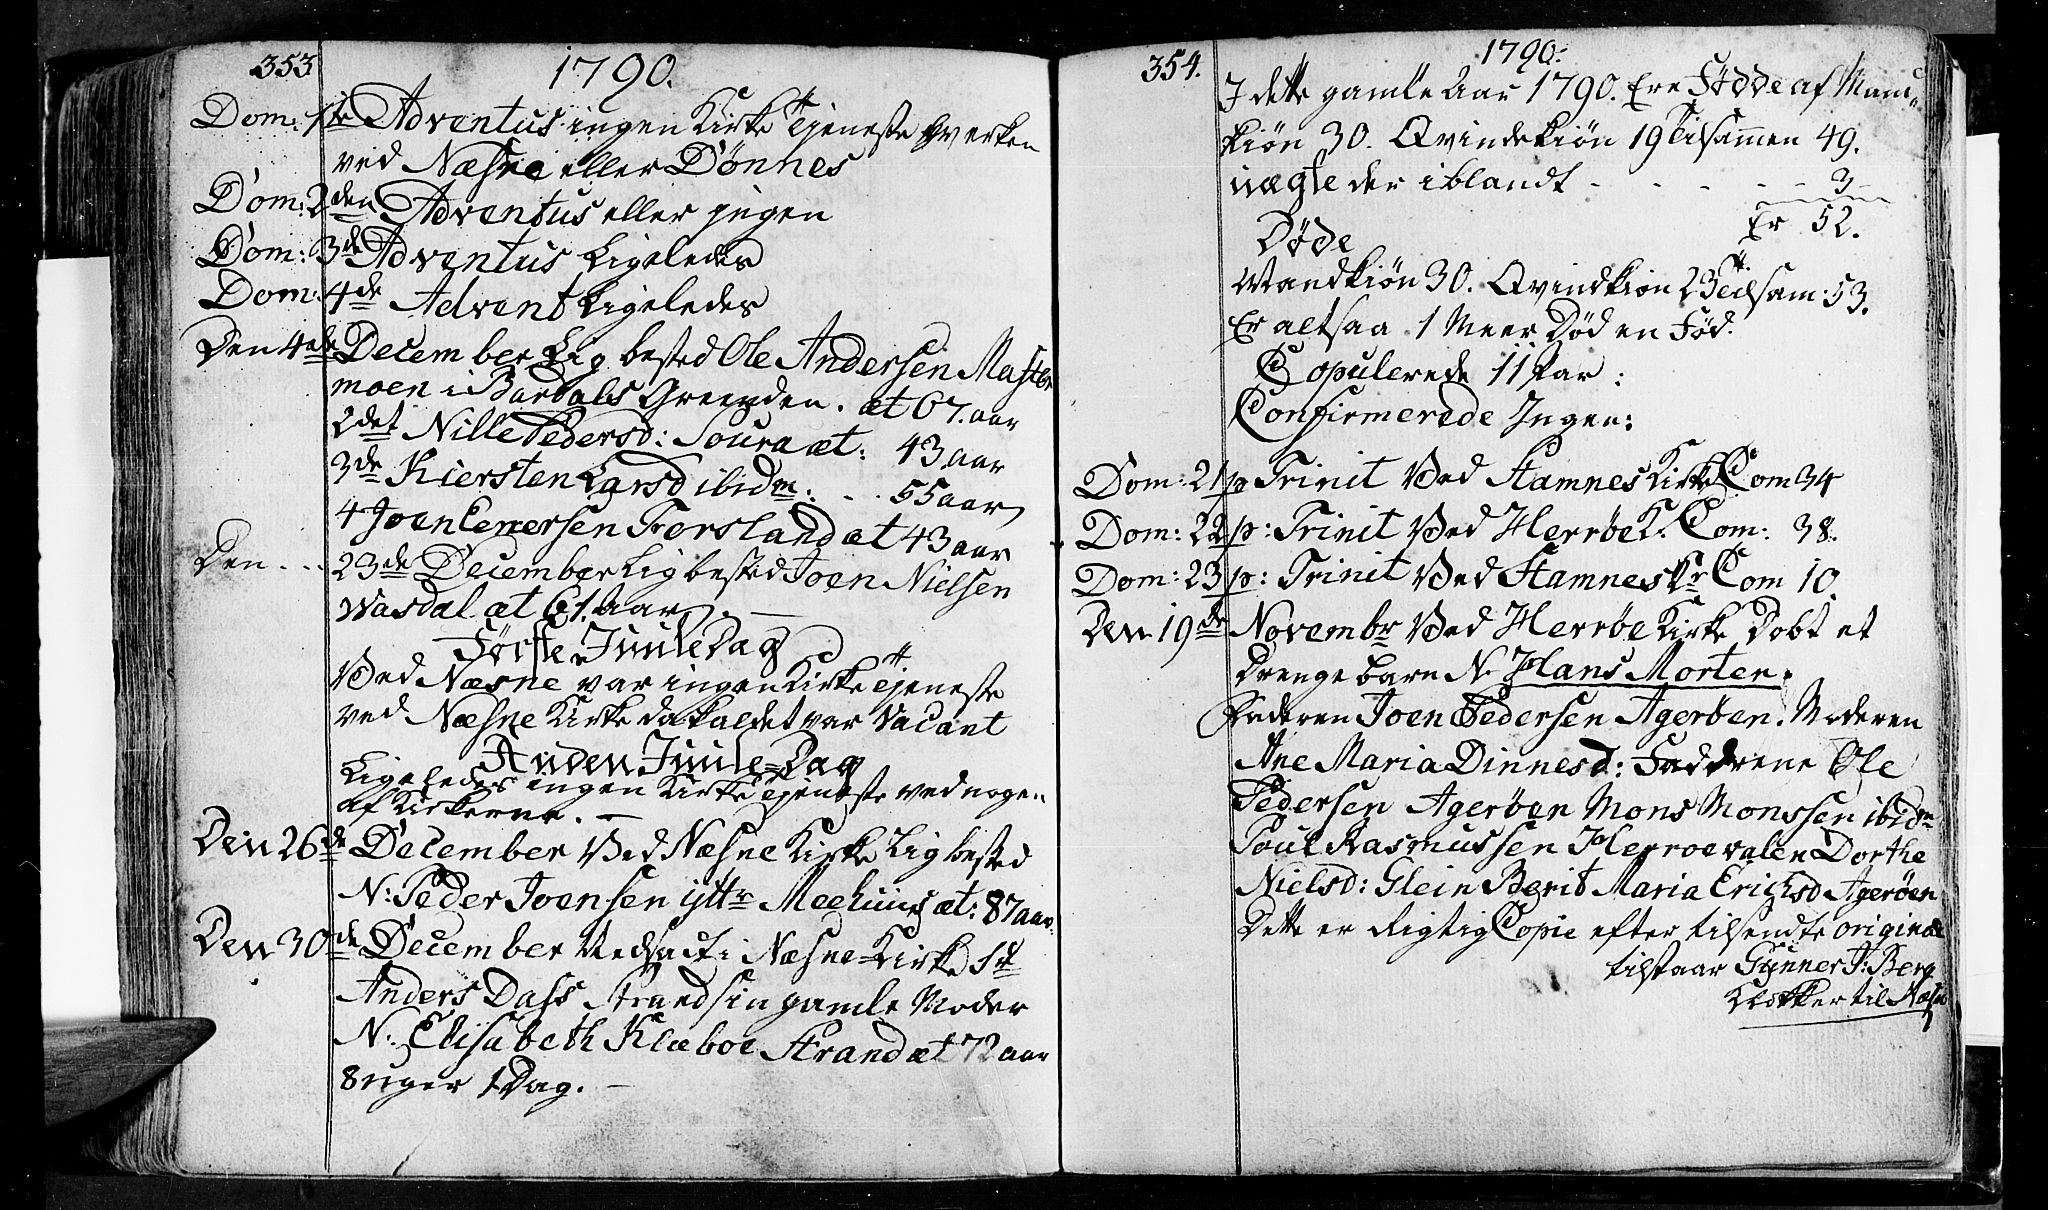 353
1790.
Dom: 1ste Adventus ingen Kirke Tjeneste hverken
ved Næsne eller Dønnes
Dom: 2den Adventus eller ingen
Dom: 3de Adventus Ligeledes
Dom: 4de Advent Ligeledes
Den 4de December Lig bested Ole Andersen
moen i Bardals Greenden. æt 67. aar
2det Nille Pedersd: Soura æt: 43 aar
3de Kiersten Larsd ibidm: . . 55 aar
4 Joen Forsland æt 43 aar
Den . . . 23de December Lig bested Joen Nielsen
Wasdal æt 61. aar. —
Første Juule Dag
Ved Næsne var ingen Kirke Tjeneste
ved Næsne Kirke da kaldet var Vacant
Anden Juule-Dag
Ligeledes ingen Kirke Tjeneste ved nogen
af Kirkerne. —
Den 26de December Ved Næsne Kirke Lig bested
N: Peder Joensen yttr æt: 87 aar.
Den 30de December Nedsadt i Næsne-Kirke Hr
Anders Dass Strand sin gamle Moder
N: Elisabeth Klæboe Strand æt 72 aar
8 uger 1 Dag. —
354.
1790.
I dette gamle Aar 1790. Ere Fødde af Man-
kiøn 30. Qvindekiøn 19 Tilsammen 49.
uægte der iblandt - - - - - 3
Er 52.
Døde
Mandkiøn 30. Qvindkiøn 23 Tilsam: 53.
Er altsaa 1 Meer Død en Fød.
Copulerede 11 Par:
Confirmerede Ingen:
Dom: 21 p Trinit Ved Stamnes Kirke Com 34
Dom: 22 p: Trinit Ved Herrøe K. Com: 38.
Dom: 23 p: Trinit Ved Stamnes Kr Com 10.
Den 19de Novembr Ved Herrøe Kirke Døbt et
Drengebarn N. Hans Morten.
Faderen Joen Pedersen Agerøen. Moderen
Ane Maria Dinnesd: Faddrene Ole
Pedersen Agerøen Mons Monssen ibidm
Poul Rasmussen Herroevalen Dorthe
Nielsd: Glein Berit Maria Erichsd Agerøen
Dette er Rigtig Copie efter tilsendte original
tilstaar Gunner J: Berg
Klokker til Næsne